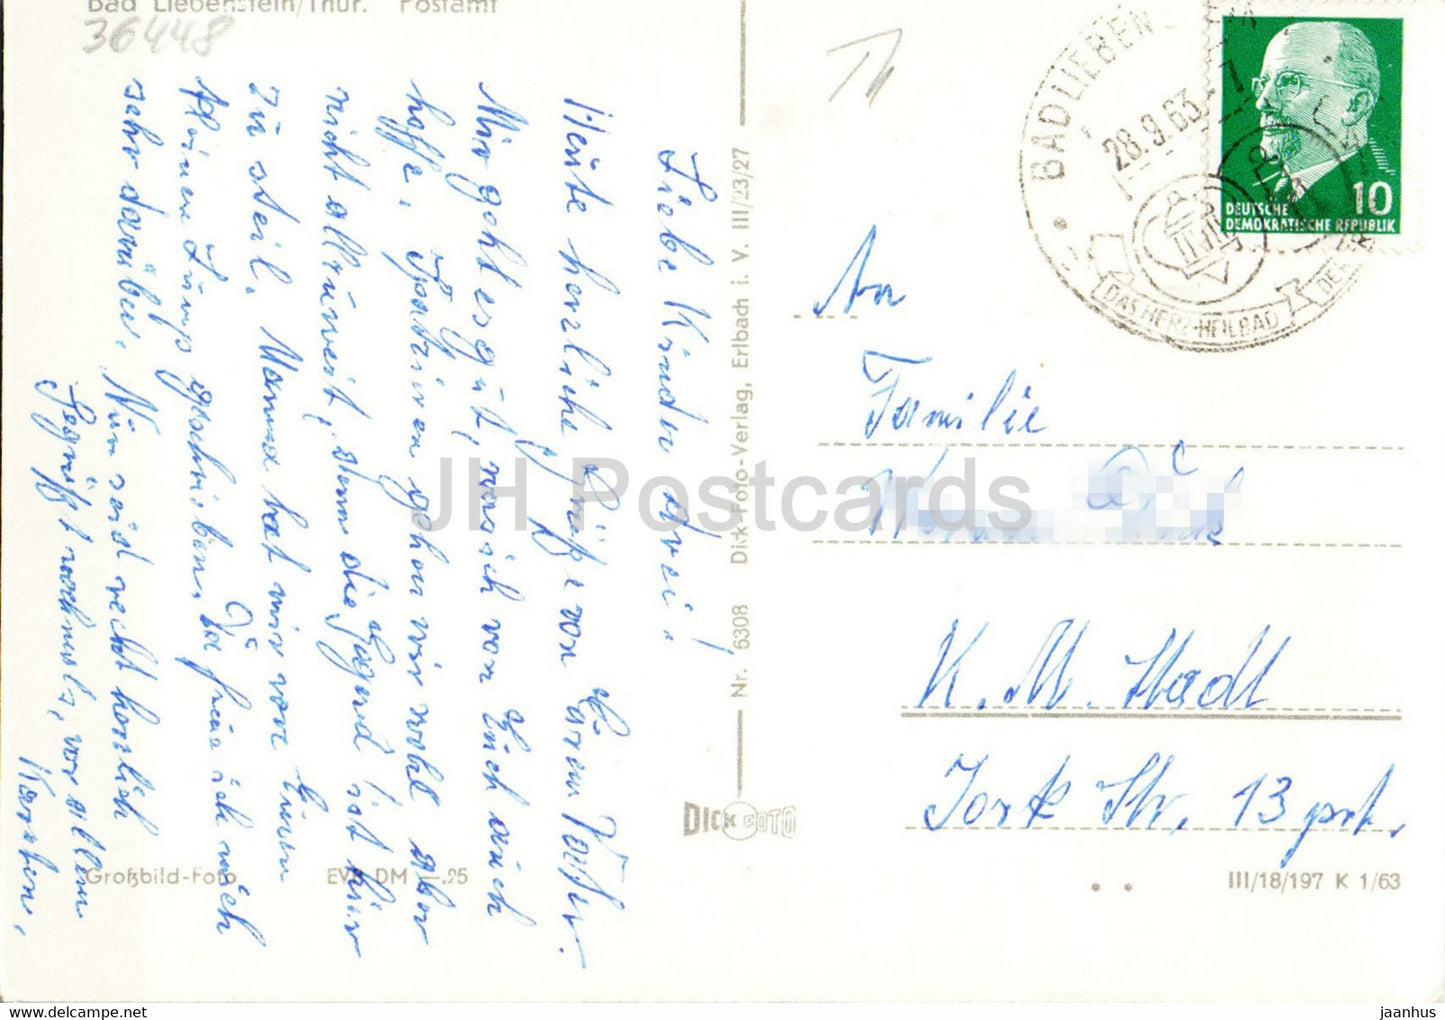 Bad Liebenstein/Thür. Postamt
36448
Liebe Kinder drei!
Heute herzliche Grüße von Eurem Vater.
Mir geht es gut, was ich von Euch auch
hoffe. Spazieren gehen wir wohl aber
nicht allzuweit, denn die Gegend ist hier
zu steil. Mama hat mir von Euren
kleinen Lump geschrieben. Da freue ich mich
sehr darüber. Nun seid recht herzlich
gegrüßt nochmals, vor allem
Karsten.
Großbild-Foto EVP DM -.25
Nr. 6308 Dick-Foto-Verlag, Erlbach i. V. III/23/27
DICK FOTO
BAD LIEBENSTEIN
28.9.63
DAS HERZ-HEILBAD
DER
10
DEUTSCHE
DEMOKRATISCHE REPUBLIK
An
Familie
K. M. Stadt
Jork Str. 13 prt.
III/18/197 K 1/63
JH Postcards
jaanhus